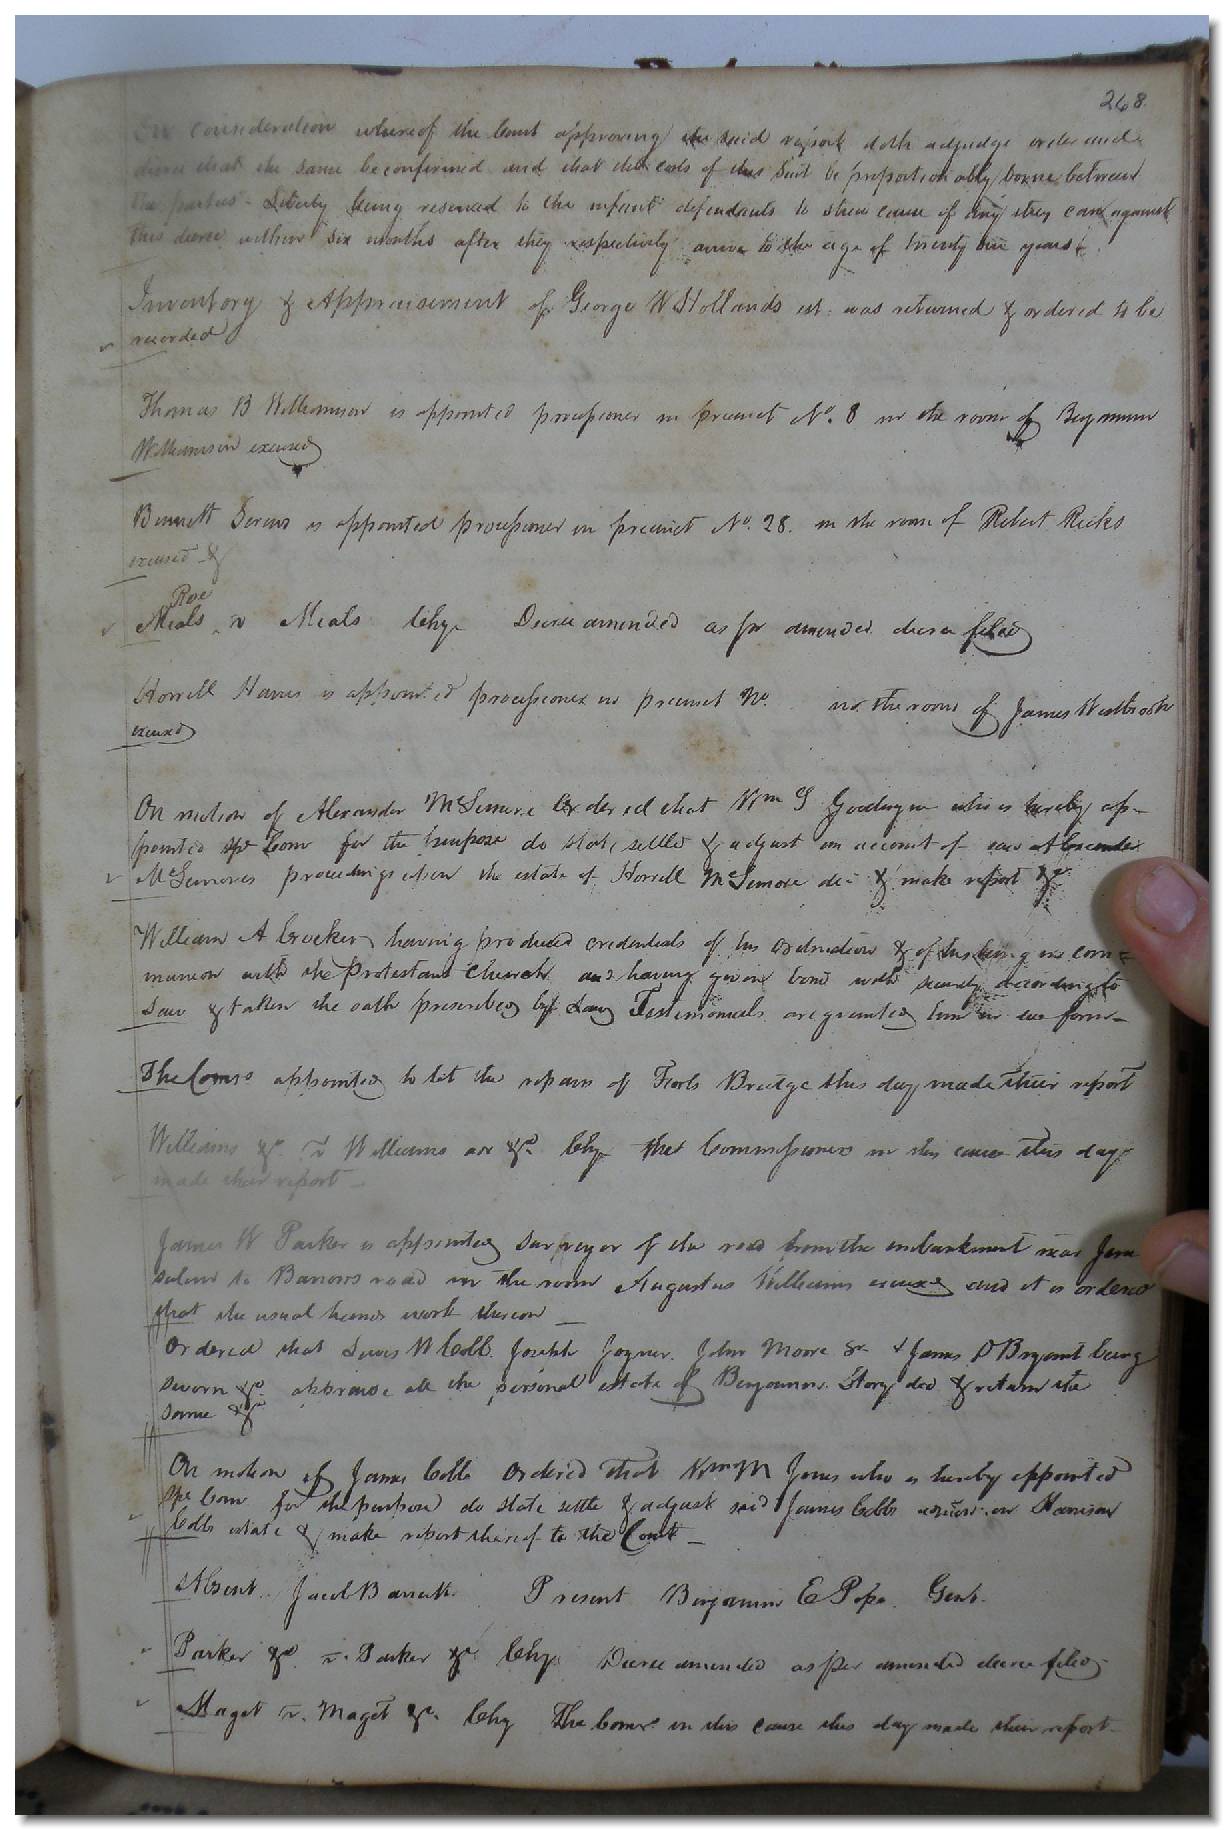 268.
On Consideration whereof the Court approving the said report doth adjudge order and
decree that the same be confirmed and that the costs of this Suit be proportionably borne between
the parties - Liberty being reserved to the infant defendants to shew cause if any they can against
this decree within six months after they respectively arrive to the age of twenty one years
Inventory & Appraisement of George W Hollands est: was returned & ordered to be
recorded
Thomas B Williamson is appointed processioner in precinct No. 8 in the room of Benjamin
Williamson excused
Bennett is appointed processioner in precinct No. 28. in the room of Robert Ricks
excused &
Roe
Meals v Meals Chy Decree amended as pr amended decree filed
Horrell Harris is appointed processioner in precinct No. in the room of James Westbrook
excused
On motion of Alexander McLemore Ordered that Wm G Goodwyn who is hereby ap-
pointed spe Com for the purpose do state, settle & adjust an account of
McLemores proceedings upon the estate of Horrell McLemore de & make report &c
William A Crocker having produced credentials of his ordination & of his being in com-
munion with the Protestant Church and having given bond with security according to
Law & taken the oath prescribed by Law Testimonials are granted him in due form
The Comrs appointed to let the repairs of Bridge this day made their report
Williams &c. v Williams &c. Chy the Commissioners in this cause this day
made their report -
James W Parker is appointed Surveyor of the road from the embankment near Jeru
salem to Barrows road in the room Augustus Williams excused and it is ordered
that the usual hands work thereon -
Ordered that Lewis W Cobb. Joseph Joyner. John Moore Sr & James D Bryant being
sworn &c. appraise all the personal estate of Benjamin Story decd & return the
same &c
On motion of James Cobb Ordered that Wm M Jones who is hereby appointed
spe Com for the purpose do state settle & adjust said James Cobbs on Harrison
Cobbs estate & make report thereof to the Court -
Absent Jacob Barrett Present Benjamin E Pope. Gent.
Parker &c v. Parker &c Chy Decree amended as per amended decree filed
Maget v. Maget &c. Chy The Comrs in this cause this day made their report -